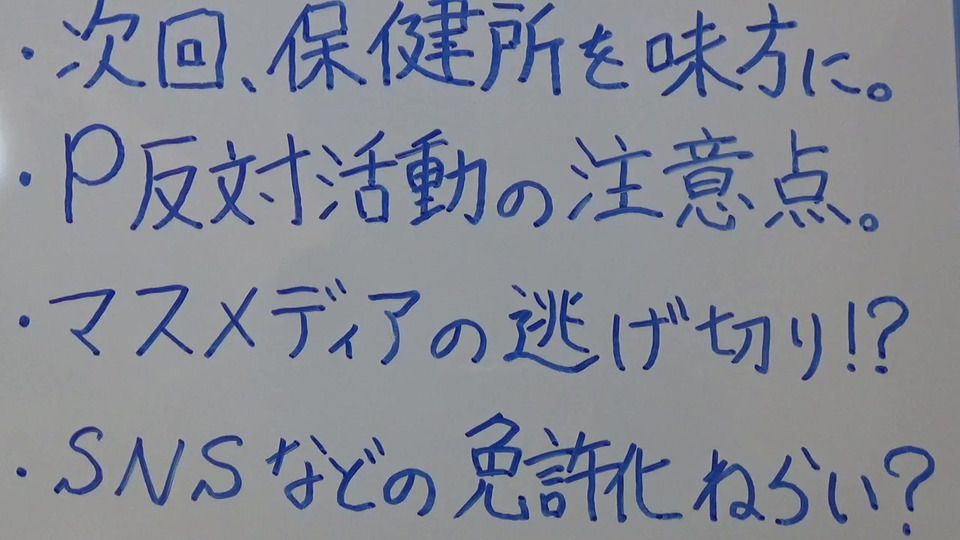 ・次回、保健所を味方に。
・P反対活動の注意点。
・マスメディアの逃げ切り!?
・SNSなどの免許化ねらい?